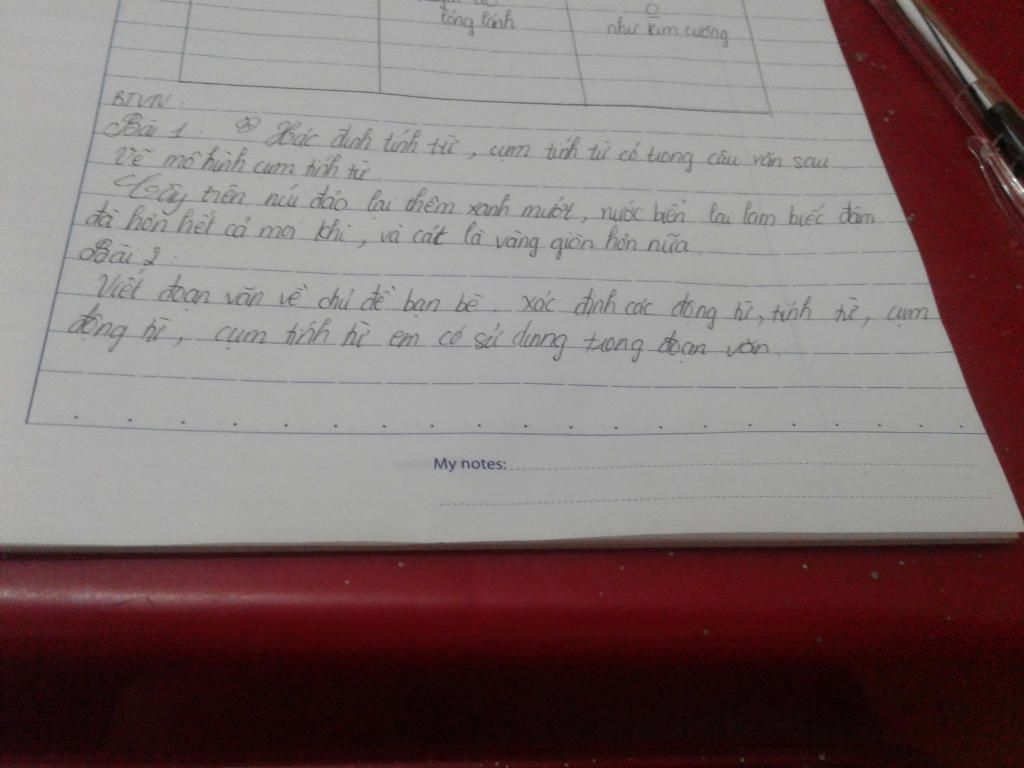 lóng lánh
như kim cương
BTVN:
Bài 1: Xác định tính từ, cụm tính từ có trong câu văn sau
Vẽ mô hình cụm tính từ
Cây trên núi đảo lại thêm xanh mướt, nước biển lại lam biếc đậm
đà hơn hết cả mọi khi, và cát lại vàng giòn hơn nữa.
Bài 2:
Viết đoạn văn về chủ đề bạn bè. xác định các động từ, tính từ, cụm
động từ, cụm tính từ em có sử dụng trong đoạn văn.
My notes: